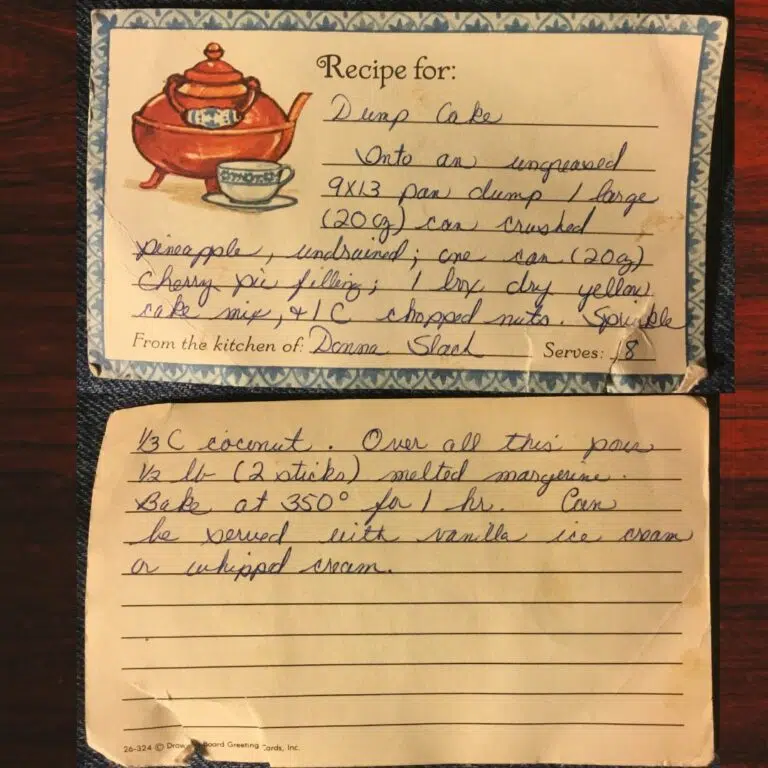 Recipe for:
Dump Cake
Onto an ungreased
9X13 pan dump 1 large
(20 oz) can crushed
pineapple, undrained; one can (20 oz)
cherry pie filling; 1 box dry yellow
cake mix, & 1 C chopped nuts. Sprinkle
From the kitchen of: Donna Slach Serves: 18
1/3 C coconut. Over all this pour
1/2 lb (2 sticks) melted margerine.
Bake at 350° for 1 hr. Can
be served with vanilla ice cream
or whipped cream.
26-324 © Board Greeting Cards, Inc.